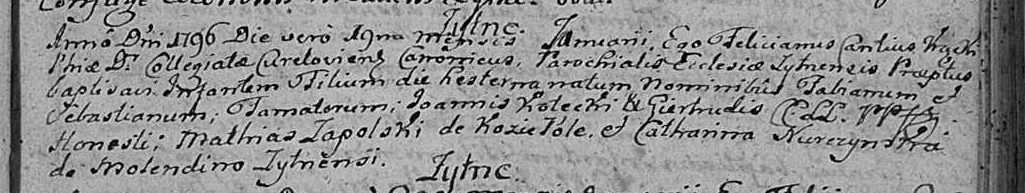 Żytne.
Anno Dni 1796 Die vero 19na mensis Januarii, Ego Felicianus Cantius
Phiæ Dr Collegiatæ Canonicus, Parochialis Ecclesiæ Zytnensis Præptus
baptisavi Infantem Filium die hesterna natum Nominibus Fabianum et
Sebastianum, Famatorum; Joannis Kotecki & Giertrudis C: LL. PPff:
Honesti; Mathias Zapolski de Kozie Pole, et Catharina
de Molendino Zytnensi.
Żytne.